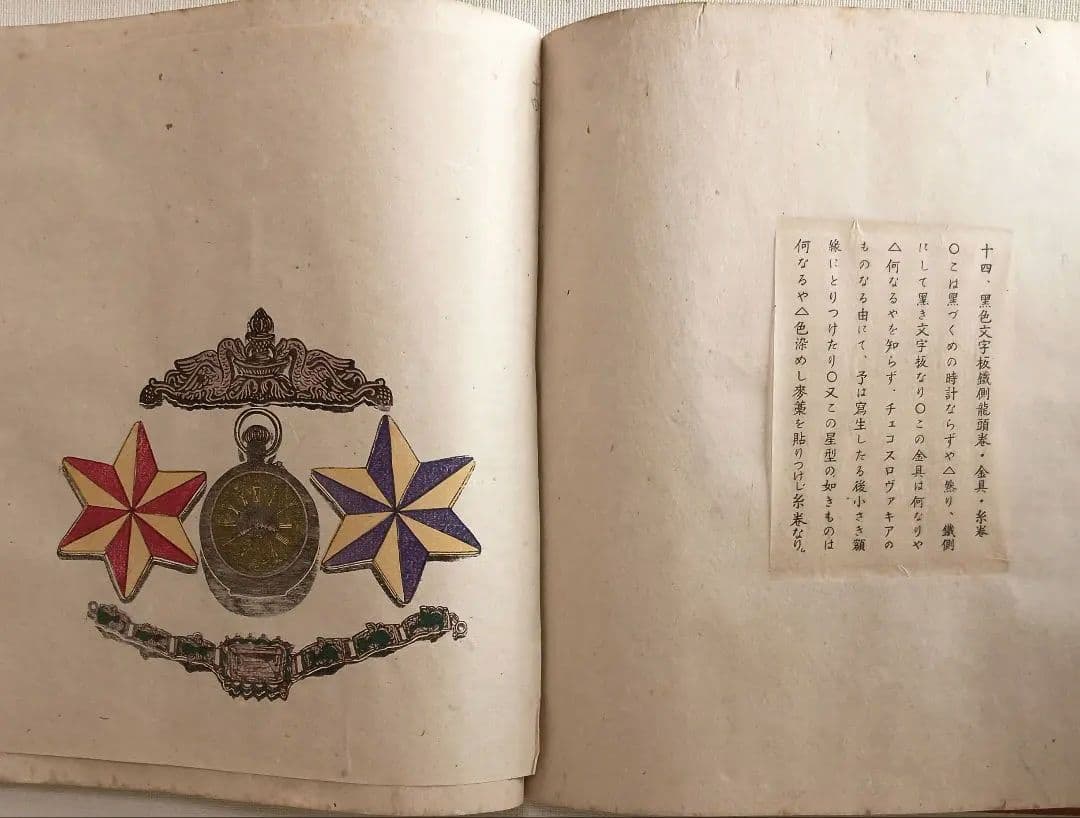 十四、黑色文字板鐵側龍頭卷・金具・糸卷
〇こは黑づくめの時計ならずや△然り、鐵側
にして黑き文字板なり〇この金具は何なりや
△何なるやを知らず、チェコスロヴァキアの
ものなる由にて、予は寫生したる後小さき額
緣にとりつけたり〇又この星型の如きものは
何なるや△色染めし麥藁を貼りつけし糸卷なり。